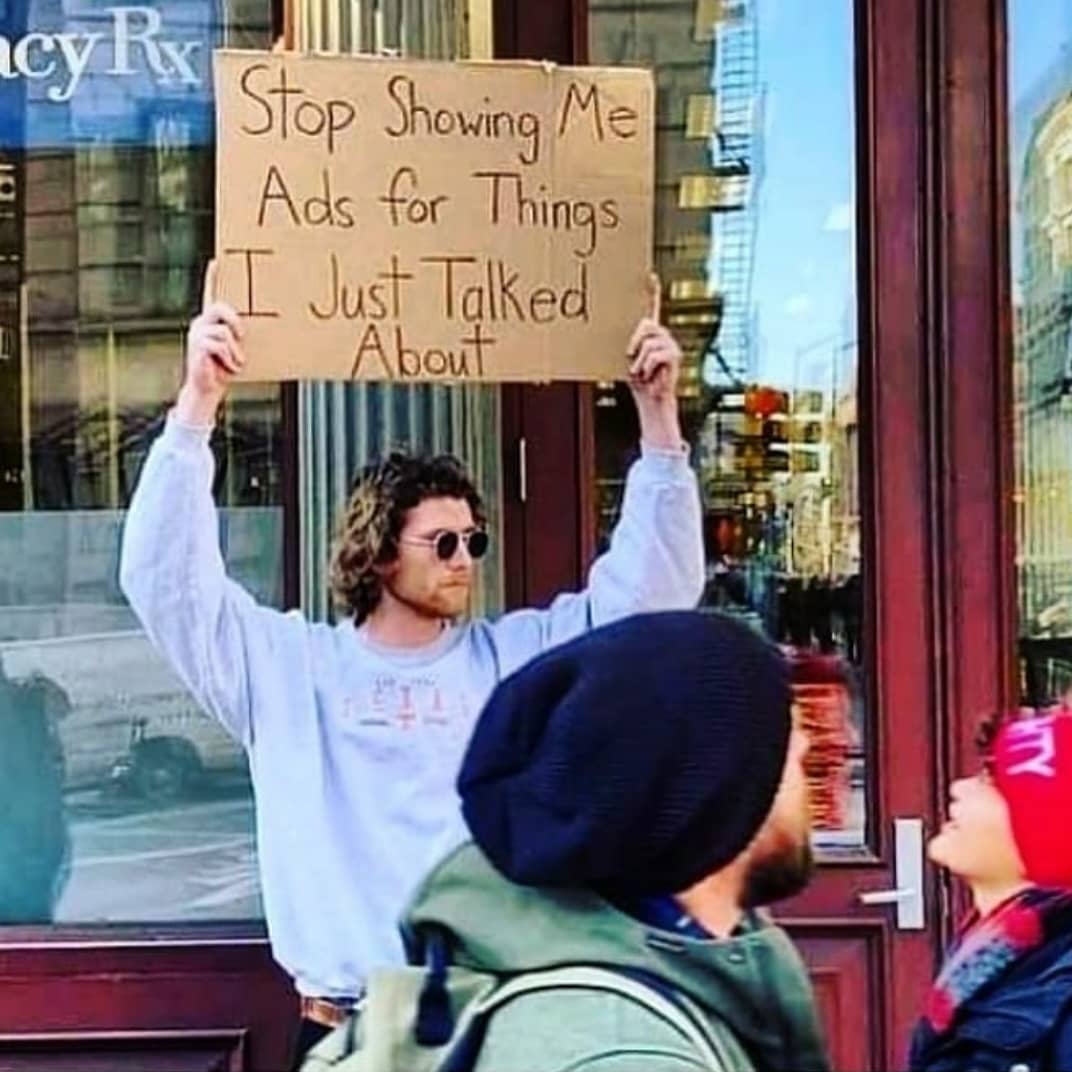 acy Rx
Stop Showing Me
Ads for Things
I Just Talked
About